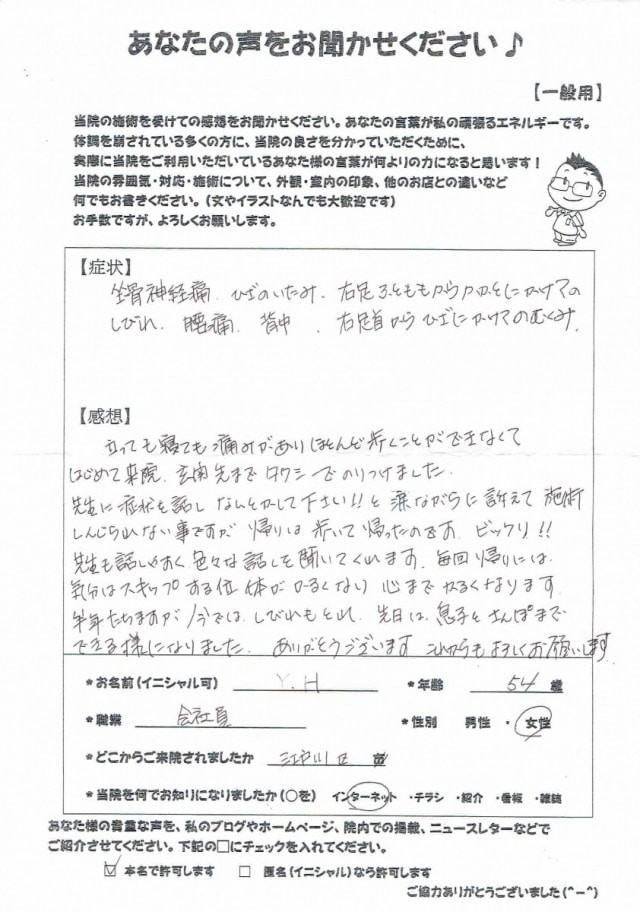 あなたの声をお聞かせください♪
【一般用】
当院の施術を受けての感想をお聞かせください。あなたの言葉が私の頑張るエネルギーです。
体調を崩されている多くの方に、当院の良さを分かっていただくために、
実際に当院をご利用いただいているあなた様の言葉が何よりの力になると思います！
当院の雰囲気・対応・施術について、外観・室内の印象、他のお店との違いなど
何でもお書きください。（文やイラストなんでも大歓迎です）
お手数ですが、よろしくお願いします。
【症状】
坐骨神経痛．ひざのいたみ．右足ふとももからかかとにかけての
しびれ．腰痛．背中．右足首からひざにかけてのむくみ
【感想】
立っても寝ても痛みがありほとんど歩くことができなくて
はじめて来院．玄関先までタクシーでのりつけました．
先生に症状を話しなんとかして下さい!!と涙ながらに訴えて施術
しんじられない事ですが帰りは歩いて帰ったのです．ビックリ!!
先生も話しやすく色々な話しを聞いてくれます．毎回帰りには
気分はスキップする位体がかるくなり心までかるくなります．
半年たちますが今では、しびれもとれ、先日は、息子とさんぽまで
できる様になりました．ありがとうございますこれからもよろしくお願いします
*お名前（イニシャル可） Y.H *年齢 54 歳
*職業 会社員 *性別 男性・女性
*どこからご来院されましたか 江戸川区 市
*当院を何でお知りになりましたか（○を） インターネット ・チラシ ・紹介 ・看板 ・雑誌
あなた様の貴重な声を、私のブログやホームページ、院内での掲載、ニュースレターなどで
ご紹介させてください。下記の□にチェックを入れてください。
☑ 本名で許可します □ 匿名（イニシャル）なら許可します
ご協力ありがとうございました（^－^）